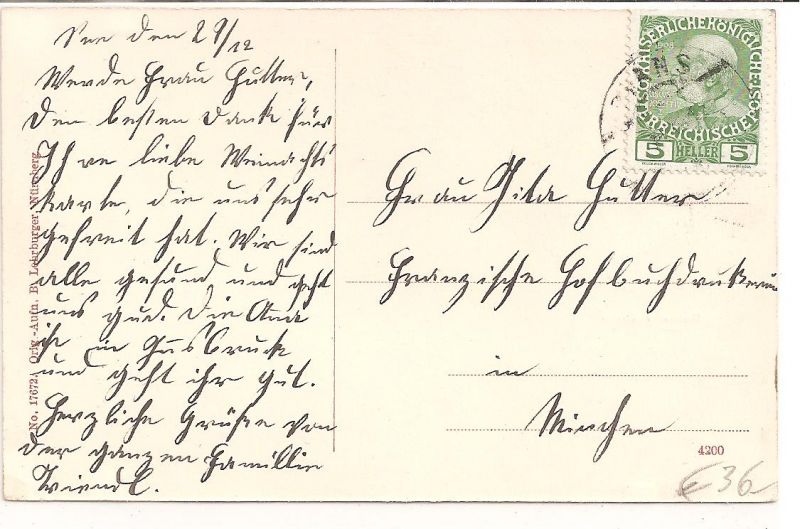 See den 29/12
Werde Frau Hutter,
den besten Dank für
Ihre liebe Weinachts
karte, die uns sehr
gefreit hat. Wir sind
alle gesund und geht
uns gud. Die Anna
ist in Insbruck
und geht ihr gut.
Herzliche Grüße von
der ganzen Famillie
Triendl.
No. 17672. Orig.-Aufn. B. Lehrburger, Nürnberg.
KAISERLICHE KÖNIGLICHE ÖSTERREICHISCHE POST
1908
5 HELLER 5
Frau Gita Hutter
Franzische Hofbuchdrukerei
in
Minchen
4200
€36